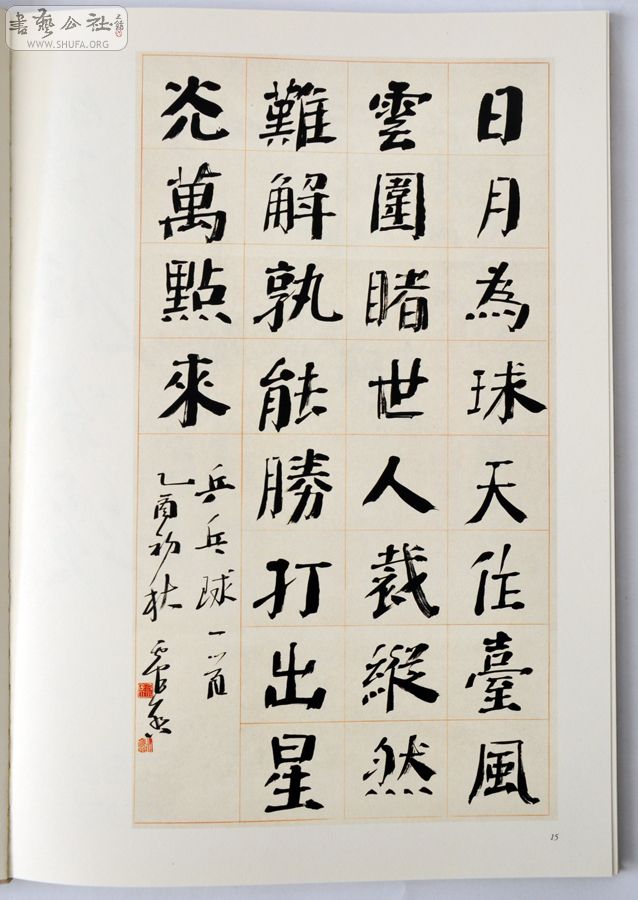 書藝公社
WWW.SHUFA.ORG
日月為球天作臺風
雲圍睹世人裁縱然
難解孰能勝打出星
光萬點來
乒乓球一首
乙酉初秋
15